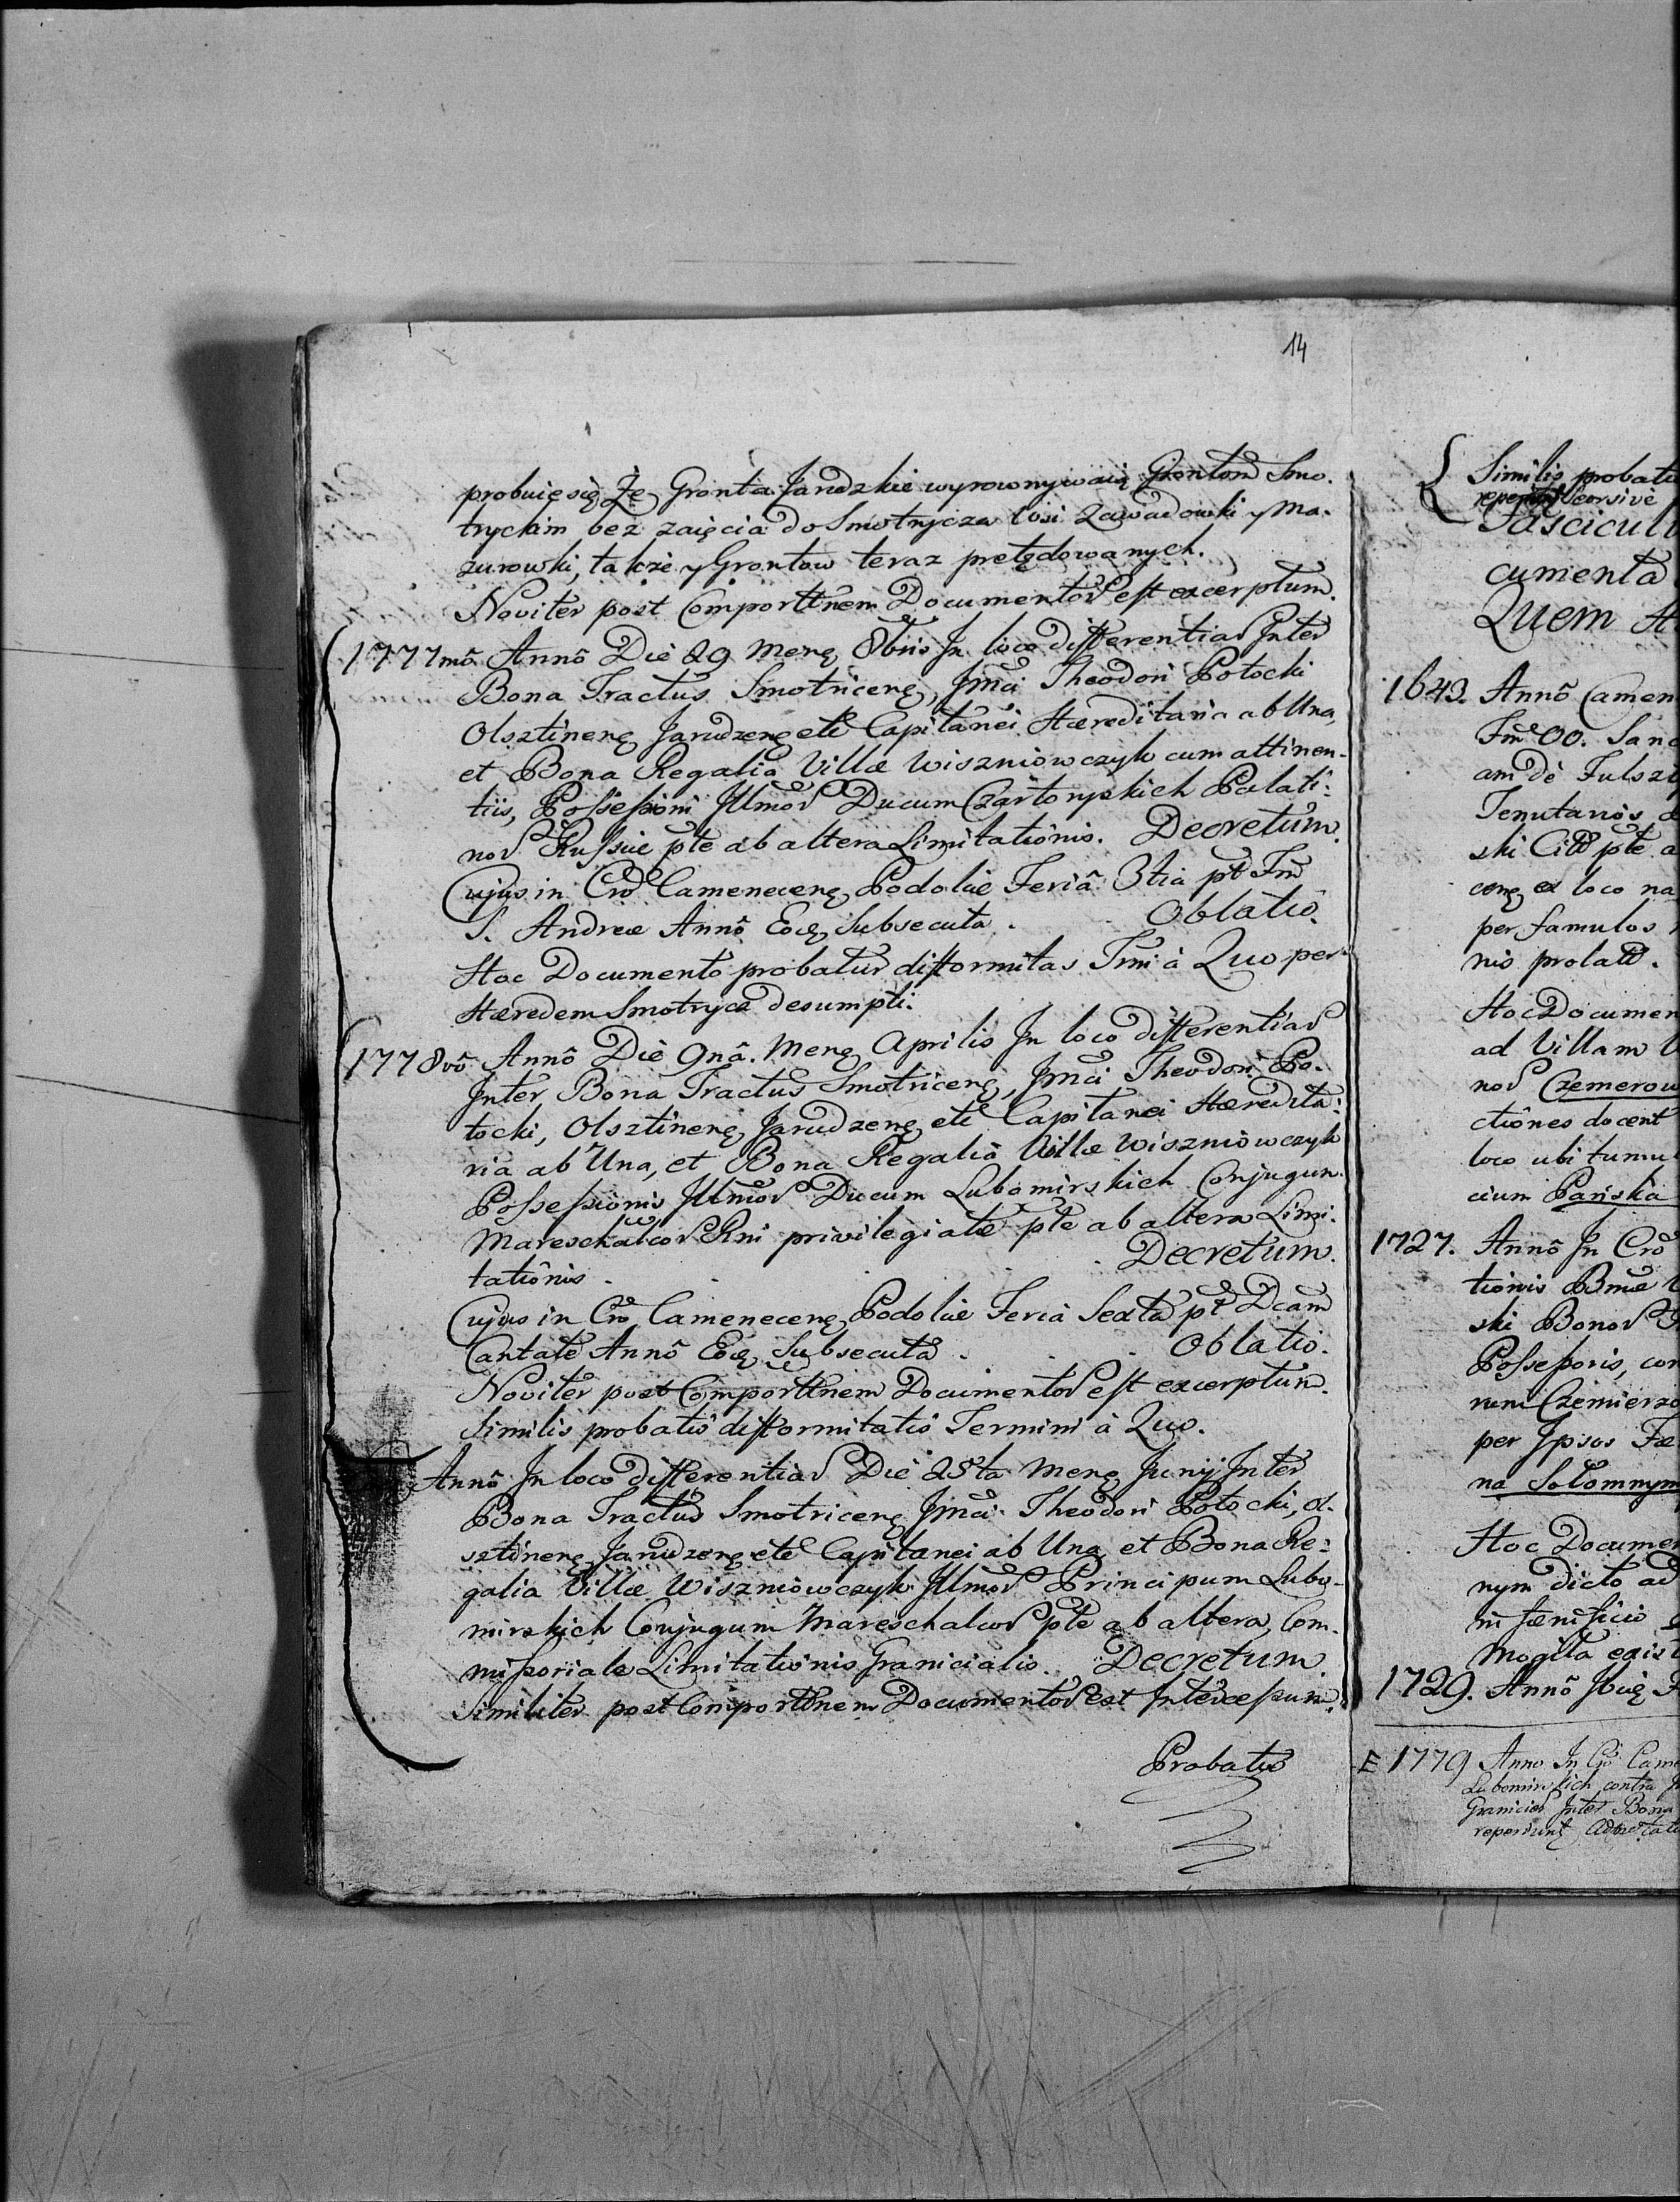 14
probuię się Że Gronta Jarudzkie wyrownywaią Grontom Smo-
tryckim bez zaięcia do Smotrycza Wsi Zawadowki y Ma-
zurowki, także y Grontow teraz pretędowanych.
Noviter post Comporttnem Documentor est excerptum.
1777mô Annô Diè 29 Menę 8bris In loco differentiar Inter
Bona Tractus Smotricenę, Jmci Theodori Potocki
Olsztinenę Jarudzenę etc Capitanei Hæreditaria ab Una,
et Bona Regalia Villæ Wiszniowczyk cum attinen-
tiis, Possessioni Illmor Ducum Czartoryskich Palati-
nor Russiæ pte ab altera Limitationis. Decretum.
Cujus in Cro Camenecenę Podoliæ Feriâ 3tia pt Fm
S. Andreæ Annô Eoę Subsecuta. Oblatio.
Hoc Documento probatur difformitas Tmi à Quo per
Hæredem Smotrycz desumpti.
1778vô Annô Diè 9nâ. Menę Aprilis In loco differentiar
Inter Bona Tractus Smotricenę, Jmci Theodori Po-
tocki, Olsztinenę Jarudzenę etc Capitanei Hæredita-
ria ab Una, et Bona Regalia Villæ Wiszniowczyk
Possessionis Illmor Ducum Lubomirskich Conjugum
Mareschalcor Rni privilegiatæ pte ab altera Limi-
tationis. Decretum.
Cujus in Cro Camenecenę Podoliæ Feria Sexta pt Dcam
Cantate Annô Eoę Subsecuta. Oblatio.
Noviter post Comporttnem Documentor est excerptum.
Similis probatio difformitatis Termini à Quo.
Annô In loco differentiar Diè 25ta Menę Junij Inter
Bona Tractus Smotricenę Jmci Theodori Potocki, Ol-
sztinenę Jarudzenę etc Capitanei ab Una et Bona Re-
galia Villæ Wiszniowczyk Illmor Principum Lubo-
mirskich Conjugum Mareschalcor pte ab altera, Com-
missoriale Limitationis Granicialis. Decretum.
Similiter post Comporttnem Documentor est Intercessum.
Probatio
Similis probatio
Seorsivè
Fascicul
cumenta
Quem
1643. Annô Camen
Fm OO. Sanc
am dè Fulszt
Tenutarios
ski Citt pte a
cenę ex loco na
per famulos
nis prolatt.
Hoc Documen
ad Villam
nor Czemerow
ctiones docent
loco ubi tumul
cium Pańska
1727. Annô In Cro
tionis Bmæ
ski Bonor
Possessoris, con
rum Czemierzo
per Ipsos Fæ
na Solomnym
Hoc Documen
nym dicto ad
ni fænificii
Mogiła exist
1729. Annô Ibię
E 1779 Anno In Cro Came
Lubomirskich contra
Granicies Inter Bona
reperiunt